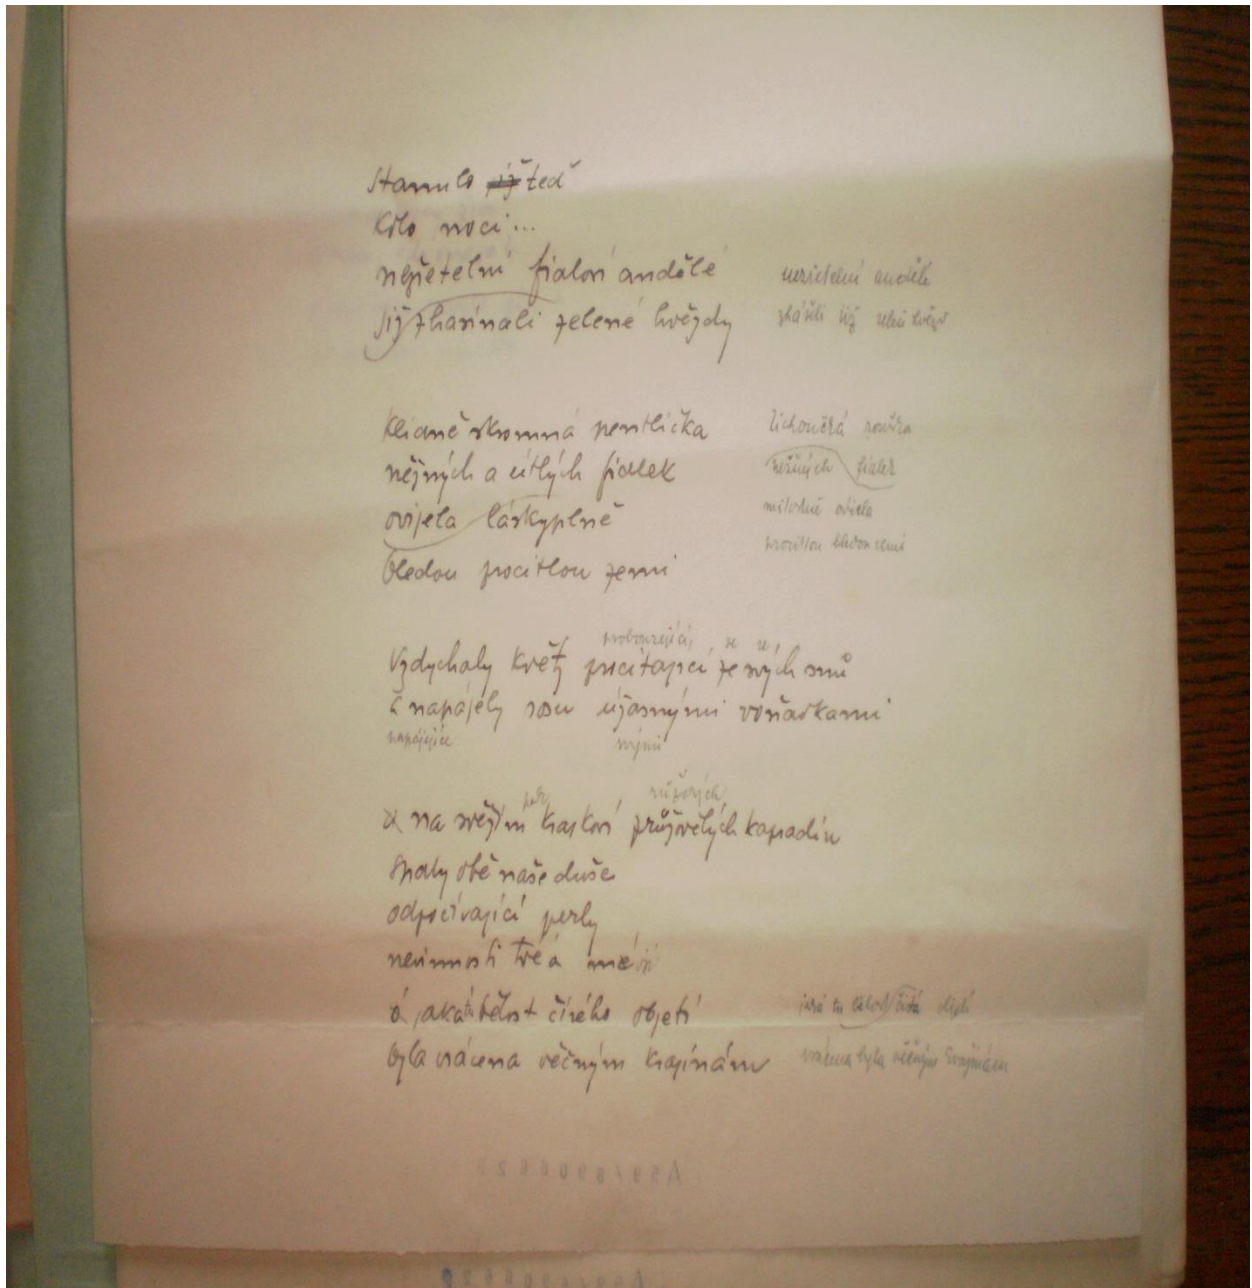 Stanulo již teď
kolo noci...
nezřetelní fialoví andělé
již zhasínali zelené hvězdy
neviditelní andělé
zhášeli již zelené hvězdy
Klidně skromná pentlička
něžných a útlých fialek
ovíjela láskyplně
bledou procitlou zemi
tichoučká rouška
něžných fialek
milostně ovíjela
procitlou bledou zemi
probouzející se ze
Vzdychaly květy procitající ze svých snů
a napájely rosu úžasnými voňavkami
napájejíce svými
růžových
a na svěžím kaskoví zrůžovělých kapradin
spaly obě naše duše
odpočívající perly
nevinnosti tvé a mé
ó, jaká to bělost čirého objetí
byla vrácena věčným krajinám
jaká to čistá
vrácena byla věčným krajinám
A59/8906625